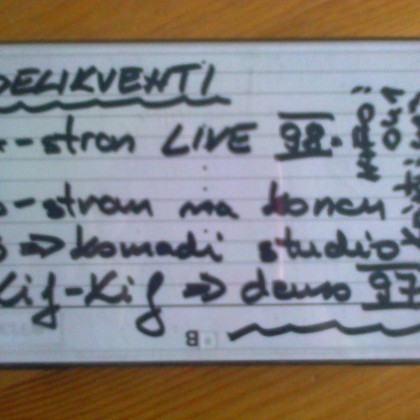 DELIKVENTI
-stran LIVE 98.
-stran na koncu
⇒ komadi studio
Kif-Kif ⇒ demo 97
B